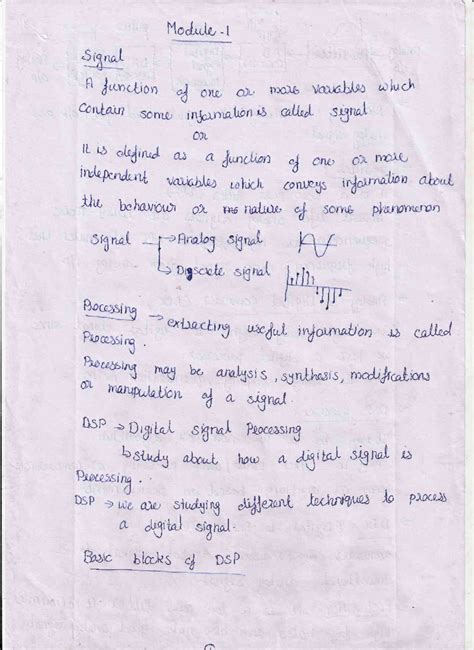 Module-1
Signal
A function of one or more variables which
contain some information is called signal
or
It is defined as a function of one or more
independent variables which conveys information about
the behaviour or nature of some phenomenon
Signal → Analog signal
→ Discrete signal
Processing → extracting useful information is called
Processing.
Processing may be analysis, synthesis, modifications
or manipulation of a signal.
DSP → Digital signal Processing
↳ study about how a digital signal is
Processing.
DSP → we are studying different techniques to process
a digital signal.
Basic blocks of DSP